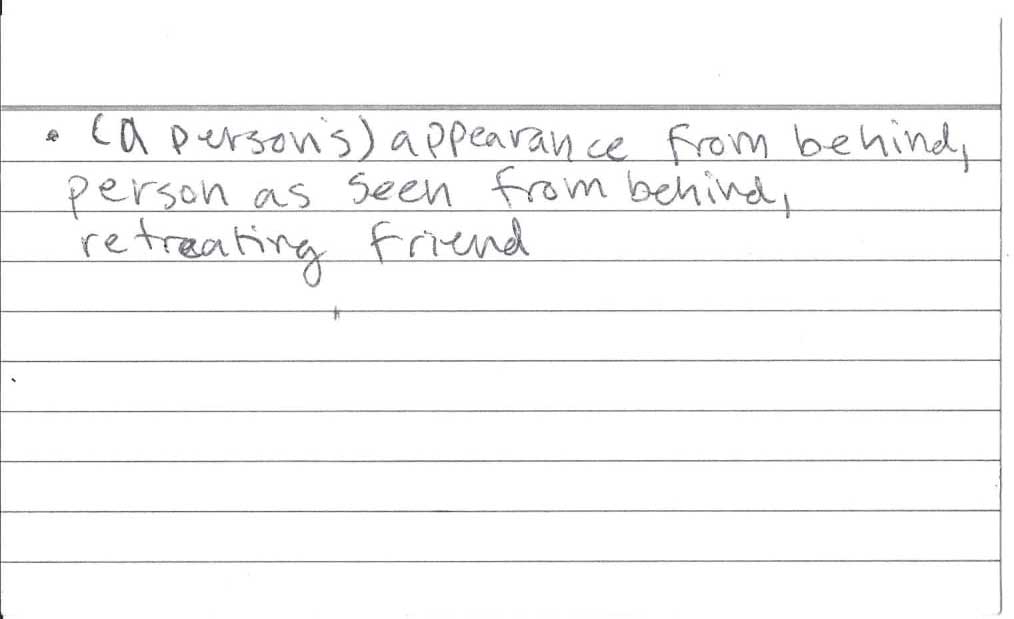 • (a person's) appearance from behind,
person as seen from behind,
retreating friend